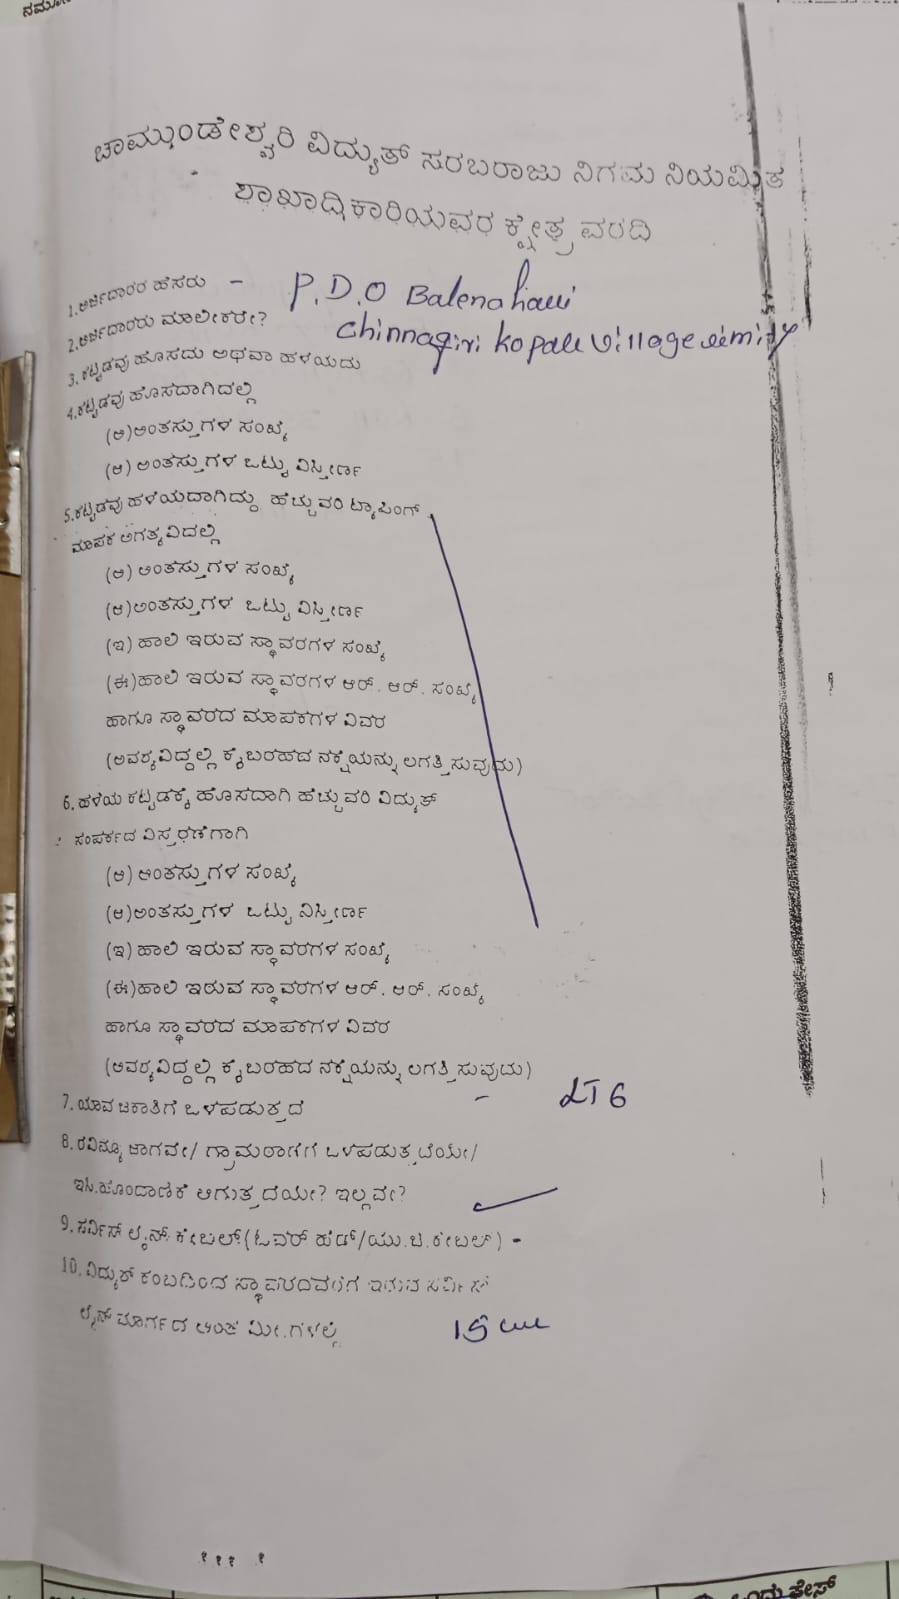 ಚಾಮುಂಡೇಶ್ವರಿ ವಿದ್ಯುತ್ ಸರಬರಾಜು ನಿಗಮ ನಿಯಮಿತ
ಶಾಖಾಧಿಕಾರಿಯವರ ಕ್ಷೇತ್ರ ವರದಿ
1.ಅರ್ಜಿದಾರರ ಹೆಸರು - P.D.O Balenahalli
2.ಅರ್ಜಿದಾರರು ಮಾಲೀಕರೇ? Chinnagiri kopalu village
3. ಕಟ್ಟಡವು ಹೊಸದು ಅಥವಾ ಹಳೆಯದು
4.ಕಟ್ಟಡವು ಹೊಸದಾಗಿದಲ್ಲಿ
(ಅ)ಅಂತಸ್ತುಗಳ ಸಂಖ್ಯೆ
(ಆ) ಅಂತಸ್ತುಗಳ ಒಟ್ಟು ವಿಸ್ತೀರ್ಣ
5.ಕಟ್ಟಡವು ಹಳೆಯದಾಗಿದ್ದು ಹೆಚ್ಚುವರಿ ಟ್ಯಾಪಿಂಗ್
ಮಾಪಕ ಅಗತ್ಯವಿದಲ್ಲಿ
(ಅ) ಅಂತಸ್ತುಗಳ ಸಂಖ್ಯೆ
(ಆ)ಅಂತಸ್ತುಗಳ ಒಟ್ಟು ವಿಸ್ತೀರ್ಣ
(ಇ) ಹಾಲಿ ಇರುವ ಸ್ಥಾವರಗಳ ಸಂಖ್ಯೆ
(ಈ)ಹಾಲಿ ಇರುವ ಸ್ಥಾವರಗಳ ಆರ್. ಆರ್. ಸಂಖ್ಯೆ
ಹಾಗೂ ಸ್ಥಾವರದ ಮಾಪಕಗಳ ವಿವರ
(ಅವಶ್ಯವಿದ್ದಲ್ಲಿ ಕೈಬರಹದ ನಕ್ಷೆಯನ್ನು ಲಗತ್ತಿಸುವುದು)
6. ಹಳೆಯ ಕಟ್ಟಡಕ್ಕೆ ಹೊಸದಾಗಿ ಹೆಚ್ಚುವರಿ ವಿದ್ಯುತ್
ಸಂಪರ್ಕದ ವಿಸ್ತರಣೆಗಾಗಿ
(ಅ) ಅಂತಸ್ತುಗಳ ಸಂಖ್ಯೆ
(ಆ)ಅಂತಸ್ತುಗಳ ಒಟ್ಟು ವಿಸ್ತೀರ್ಣ
(ಇ) ಹಾಲಿ ಇರುವ ಸ್ಥಾವರಗಳ ಸಂಖ್ಯೆ
(ಈ)ಹಾಲಿ ಇರುವ ಸ್ಥಾವರಗಳ ಆರ್. ಆರ್. ಸಂಖ್ಯೆ
ಹಾಗೂ ಸ್ಥಾವರದ ಮಾಪಕಗಳ ವಿವರ
(ಅವಶ್ಯವಿದ್ದಲ್ಲಿ ಕೈಬರಹದ ನಕ್ಷೆಯನ್ನು ಲಗತ್ತಿಸುವುದು)
7. ಯಾವ ಜಕಾತಿಗೆ ಒಳಪಡುತ್ತದೆ - LT 6
8. ರೆವಿನ್ಯೂ ಜಾಗವೇ/ ಗ್ರಾಮಠಾಣೆಗೆ ಒಳಪಡುತ್ತದೆಯೇ/
ಇಸಿ.ಹೊಂದಾಣಿಕೆ ಆಗುತ್ತದೆಯೇ? ಇಲ್ಲವೇ?
9. ಸರ್ವಿಸ್ ಲೈನ್ ಕೇಬಲ್ (ಓವರ್ ಹೆಡ್/ಯು.ಜಿ.ಕೇಬಲ್) -
10. ವಿದ್ಯುತ್ ಕಂಬದಿಂದ ಸ್ಥಾವರದವರೆಗೆ ಇರುವ ಸರ್ವಿಸ್
ಲೈನ್ ಮಾರ್ಗದ ಅಂತರ ಮೀ.ಗಳಲ್ಲಿ 15
ಒಂದು ಕೇಸ್